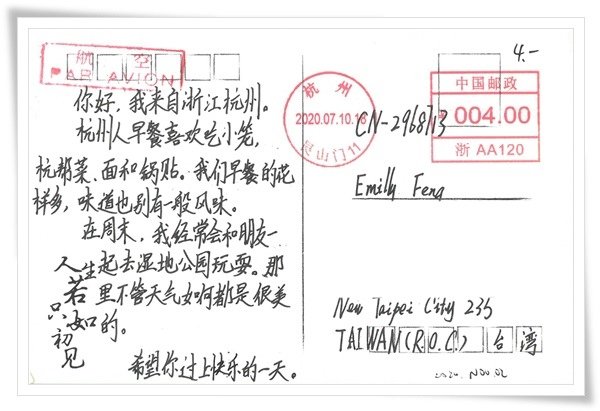 航 空
PAR AVION
你好,我来自浙江杭州。
杭州人早餐喜欢吃小笼,
杭帮菜、面和锅贴。我们早餐的花
样多,味道也别有一般风味。
在周末,我经常会和朋友一
起去湿地公园玩耍。那
里不管天气如何都是很美
的。
人生若只如初见
希望你过上快乐的一天。
4.-
杭 州
2020.07.10.16
艮山门11
中国邮政
004.00
浙 AA120
CN-2968713
Emilly Feng
New Taipei City 235
TAIWAN(R.O.C.) 台湾
NOV. 02